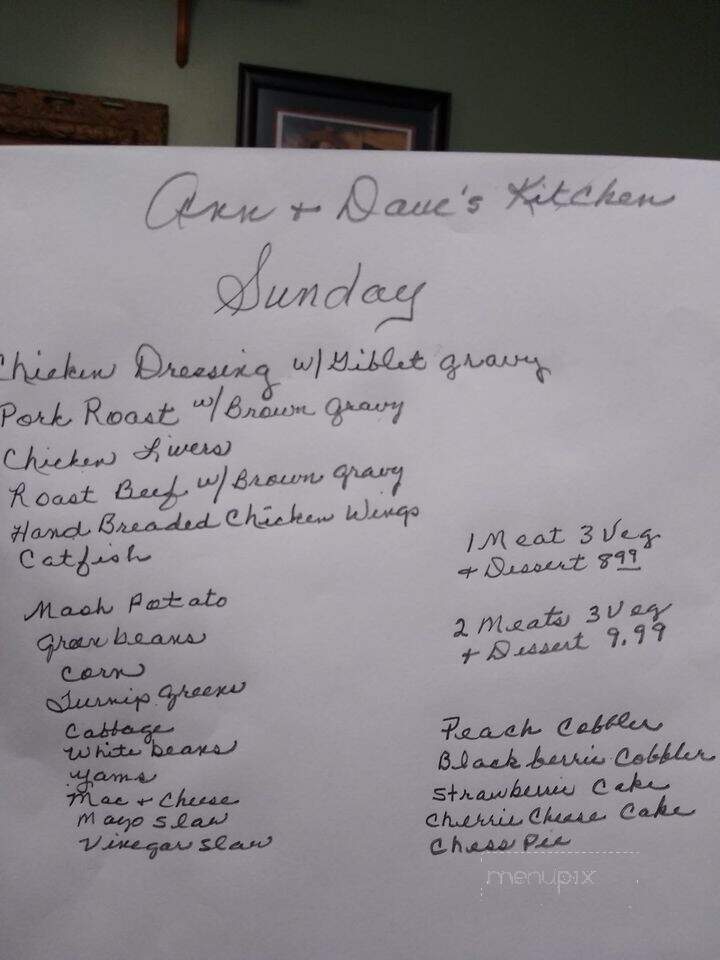 Ann + Dave's Kitchen
Sunday
Chicken Dressing w/ Giblet gravy
Pork Roast w/ Brown gravy
Chicken Livers
Roast Beef w/ Brown gravy
Hand Breaded Chicken Wings
Catfish
Mash Potato
green beans
corn
Turnip greens
Cabbage
White beans
yams
Mac + Cheese
Mayo slaw
Vinegar slaw
1 Meat 3 Veg
+ Dessert 8.99
2 Meats 3 Veg
+ Dessert 9.99
Peach Cobbler
Black berrie Cobbler
Strawberrie Cake
Cherrie Cheese Cake
Chess Pie
menupix